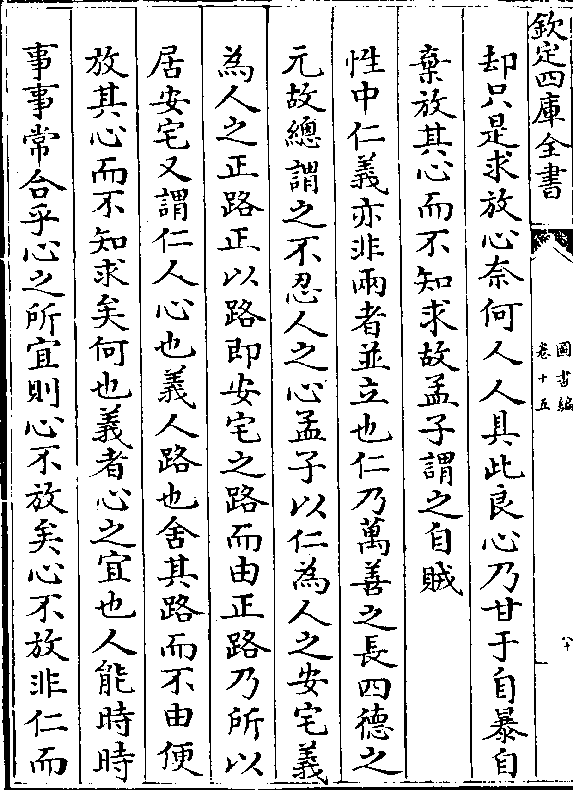 欽定四庫全書
圖書編
卷十五
八十
却只是求放心奈何人人具此良心乃甘于自暴自
棄放其心而不知求故孟子謂之自賊
性中仁義亦非兩者並立也仁乃萬善之長四德之
元故總謂之不忍人之心孟子以仁為人之安宅義
為人之正路正以路即安宅之路而由正路乃所以
居安宅又謂仁人心也義人路也舍其路而不由便
放其心而不知求矣何也義者心之宜也人能時時
事事常合乎心之所宜則心不放矣心不放非仁而